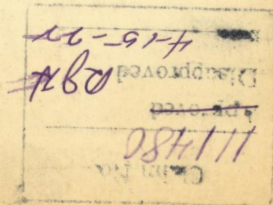 Claim No.
111480
Approved
Disapproved
4-15-22